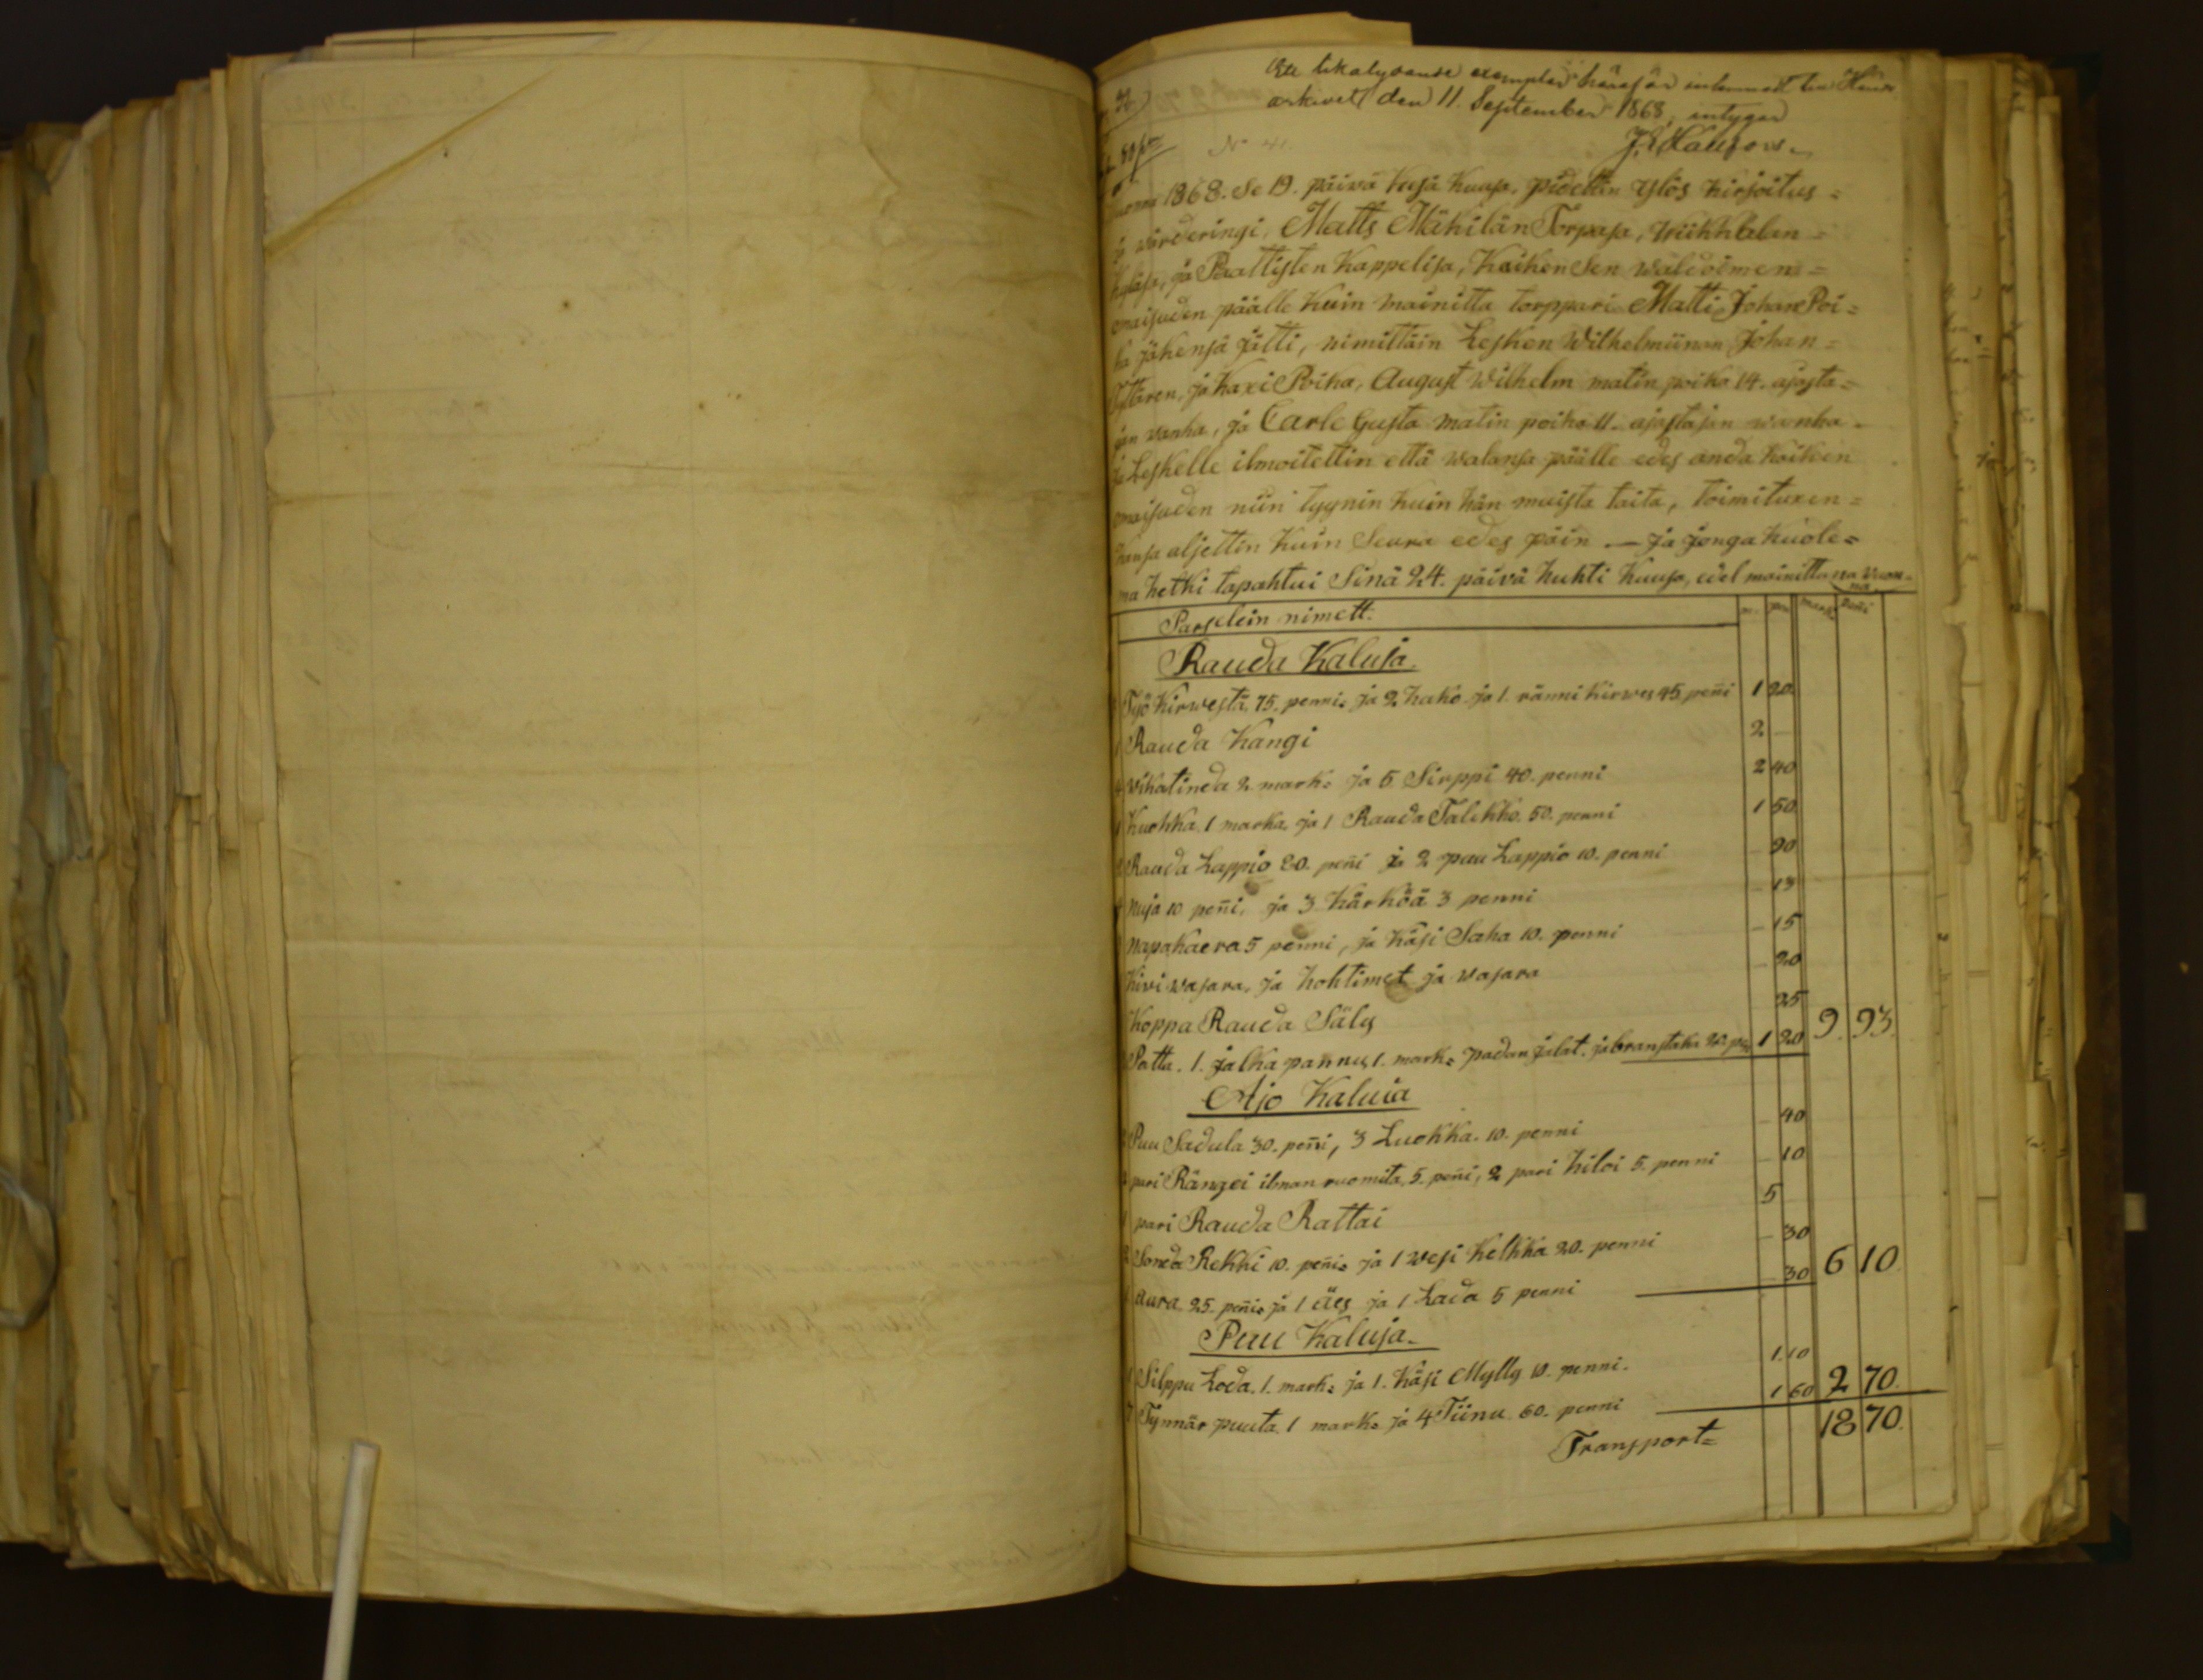 Ett likalydande exemplar häraf är inlemnadt till Härads
arkivet den 11. September 1868, intygar
N:o 41.
1868. Se 19. päivä kesä kuusa, pidettin ylös kirjoitus=
ja wärderingi, Matts Mäkilän Torpasa,
kyläsä, ja Paattisten kappelisa, kaiken sen
omaisuden päälle kuin mainittu torppari Matti Johan Poi=
ka jälkensä jätti, nimittäin Lesken Wilhelmiinan Johan=
Tyttären, ja kaxi Poika, August Wilhelm matin poika 14. ajasta=
jan vanha, ja Carle Gusta matin poika 11. ajastajan wanha.
ja Leskelle ilmoitettin että walansa päälle edes anda kaiken
omaisuden niin tyynin kuin hän muista taita, toimituxen=
kansa aljettin kuin Seura edes päin. — ja jonga kuole=
ma hetki tapahtui Sinä 24. päivä huhti kuusa, edel mainittuna vuon=
na
Parselein nimett:
Rauda Kaluja.
Työ kirwestä, 75. penni= ja 2 hako ja 1. ränni kirwes 45 peñi 1 20
1 Rauda Kangi 2 —
4 vikatineda 2. mark= ja 5 Sirppi 40. penni 2 40
1 Kuokka 1 marka, ja 1 Rauda Talikko. 50. penni 1 50
2 Rauda Lappio 20. peñi ja 2 puu Lappio 10. penni 90
nuja 10 peñi, ja 3 kärköä 3 penni 13
napakaera 5 penni, ja käsi Saha 10. penni 15
kivi wasara, ja hohtimet ja wasara 20
Koppa Rauda Säly 25
Patta. 1. jalka pannu, 1. mark= padan jalat. ja branstaka 20. pñi 1 20 9. 93.
Ajo Kaluia
Puu Sadula 30. peñi, 3 Luokka. 10. penni 40
pari Rängei ilman ruomita, 5. peñi, 2 pari hiloi 5. penni 10
1 pari Rauda Rattai 5
2 Sonda Rekki 10. peñi= ja 1 vesi kelkka 20. penni 30
1 aura, 25. peñi= ja 1 äes ja 1 Lada 5 penni 30 6 10
Puu Kaluja.
1 Silppu Loda. 1. mark= ja 1. käsi Mylly 10. penni. 1.10
7 Tynnär puuta. 1 mark= ja 4 Tiinu 60. penni 1 60 2 70.
Transport= 18 70.